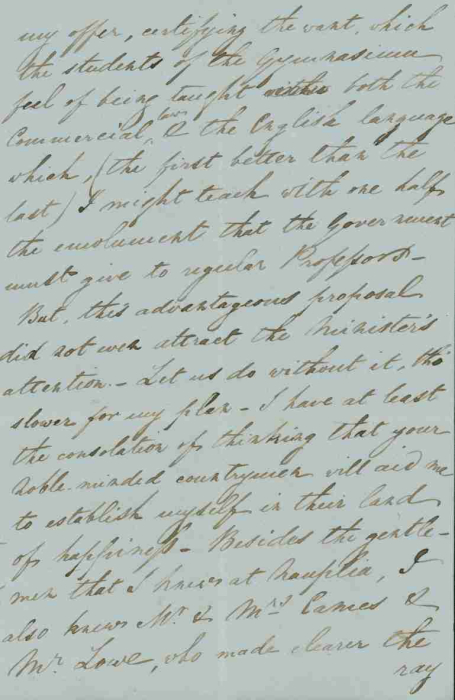 my offer, certifying the want, which
the students of the Gymnasium
feel of being taught both the
Commercial, law & the English language
which, (the first better than the
last) I might teach with one half
the emolument that the Government
must give to regular Professors –
But, this advantageous proposal
did not even attract the Minister's
attention. – Let us do without it, tho'
slower for my plan – I have at least
the consolation of thinking that your
noble-minded countrymen will aid me
to establish myself in their land
of happiness – Besides the gentle-
men that I knew at Nauplia, I
also knew Mr & Mrs Eames &
Mr Lowe, who made clearer the
ray